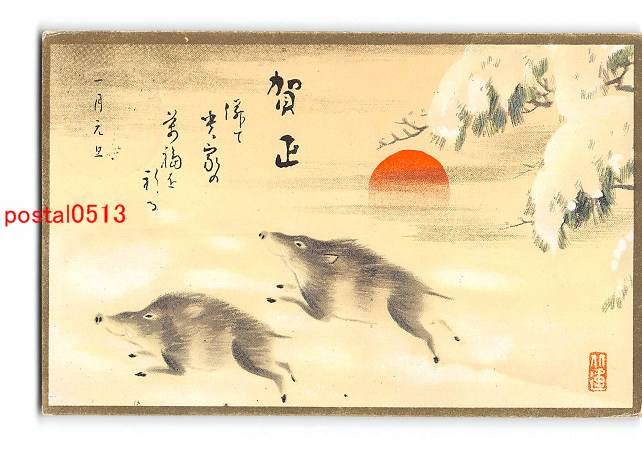 賀正
併て
貴家の
萬福を
祈る
一月元旦
postal0513